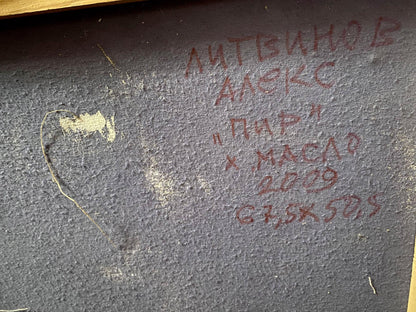 ЛИТВИНОВ
АЛЕКС
„ПИР"
х. МАСЛО
2009
67,5х50,5